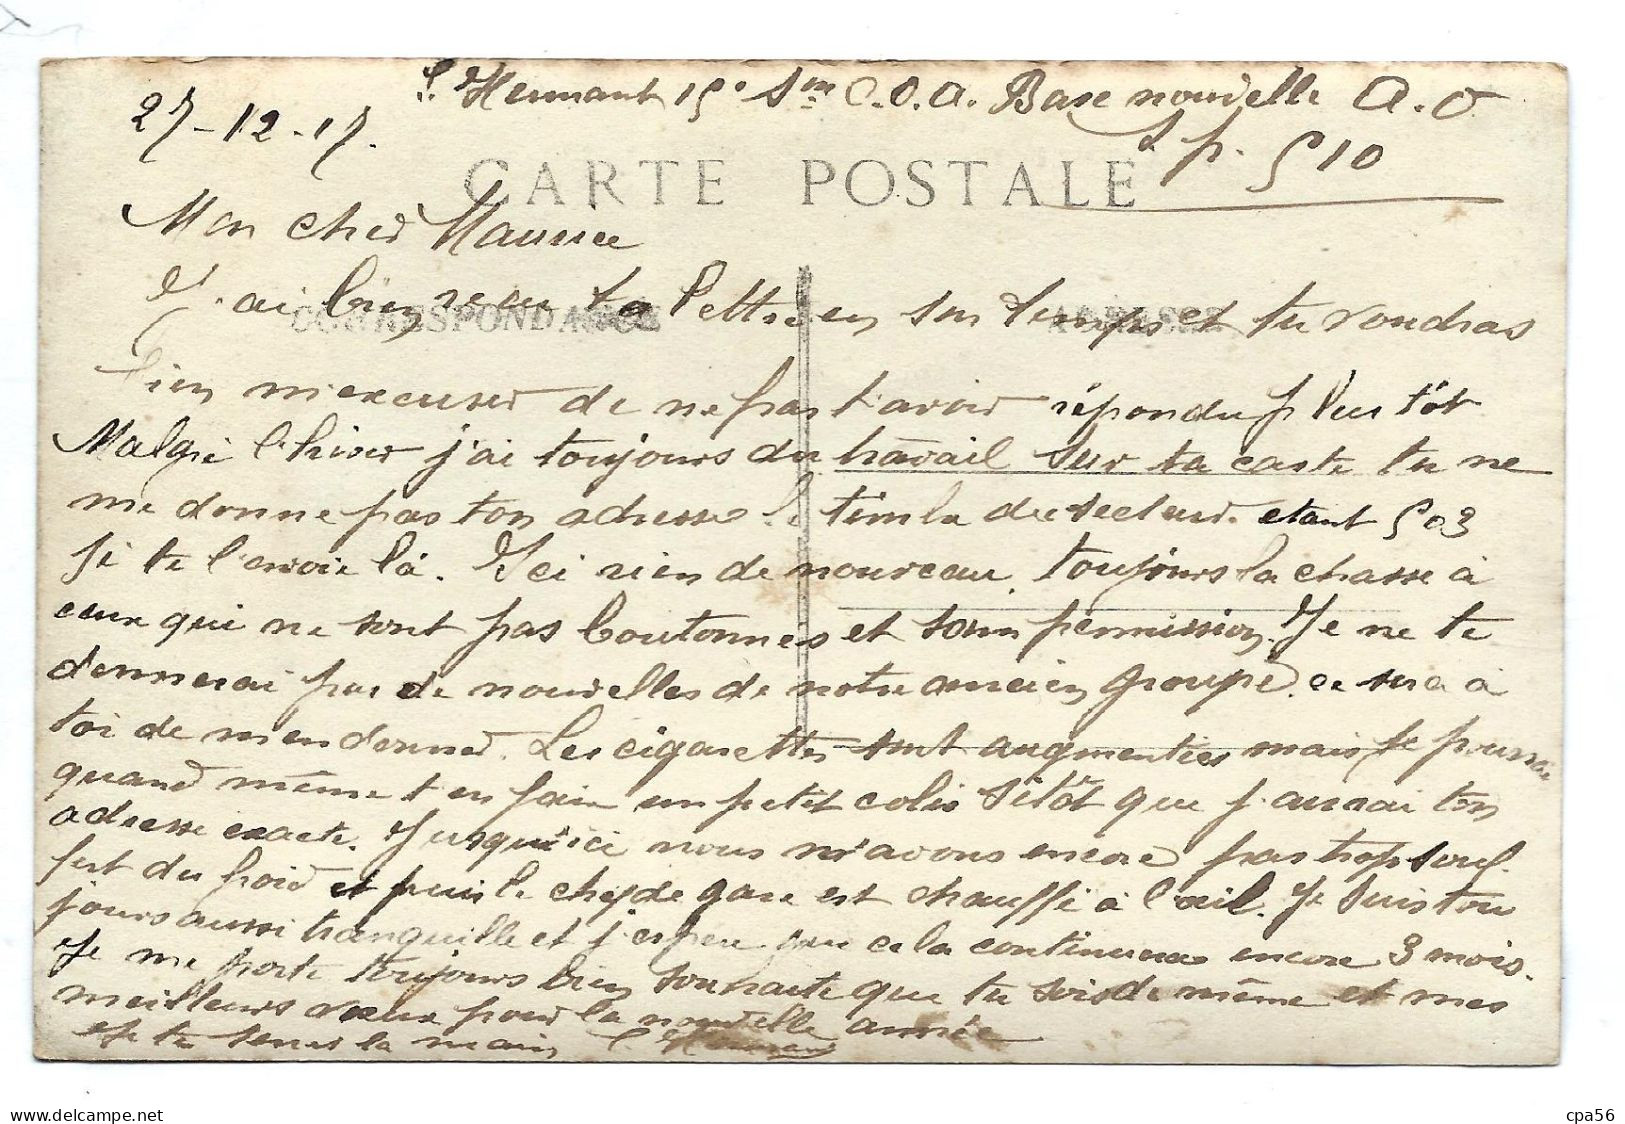 L. Hermant 15e Son C.O.A. Base nouvelle A.O
27-12-17.
S. p. 510
CARTE POSTALE
Mon cher Maurice
CORRESPONDANCE
J'ai bien reçu ta lettre en son temps et tu voudras
bien m'excuser de ne pas t'avoir répondu plus tôt
Malgré l'hiver j'ai toujours du travail sur ta carte tu ne
me donne pas ton adresse le timbre du secteur étant 503
je te l'envoie là. Ici rien de nouveau toujours la chasse à
ceux qui ne sont pas boutonnés et sans permission. Je ne te
donnerai pas de nouvelles de notre ancien groupe ce sera à
toi de m'en donner. Les cigarettes sont augmentées mais je pourrai
quand même t'en faire un petit colis sitôt que j'aurai ton
adresse exacte. Jusqu'ici nous n'avons encore pas trop souf-
fert du froid et puis le chef de gare est chauffé à l'œil. Je suis tou
jours aussi tranquille et j'espère que cela continuera encore 3 mois.
Je me porte toujours bien souhaite que tu sois de même et mes
meilleurs vœux pour la nouvelle année
Je te serre la main L. Hermant
cpa56